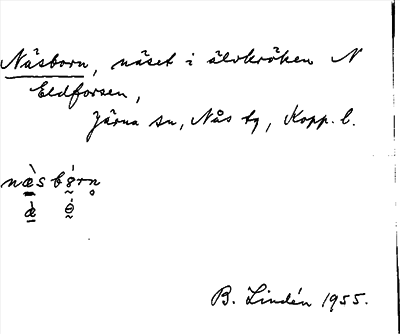 Näsborn, näset i älvkröken N
Eldforsen,
Järna sn, Nås tg, Kopp. l.
B. Lindén 1955.